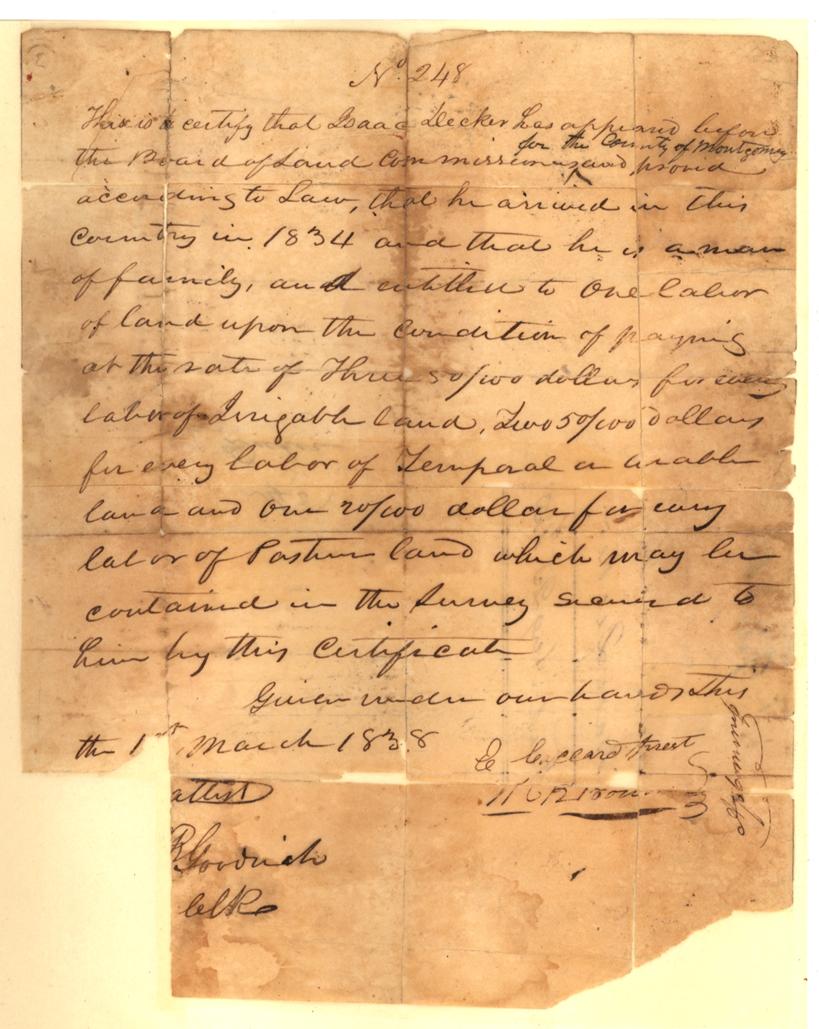 No. 248
This is to certify that Isaac Decker has appeared before
for the County of Montgomery
the Board of Land Commissioners, and proved
according to Law, that he arrived in this
Country in 1834 and that he is a man
of family, and entitled to One labor
of land upon the Condition of paying
at the rate of Three 50/100 dollars for every
labor of Irrigable land, Two 50/100 dollars
for every labor of Temporal or arable
land and One 20/100 dollar for every
labor of Pasture land which may be
contained in the Survey secured to
him by this Certificate
Given under our hands this
the 1st, March 1838
attest
B Goodrich
Clk